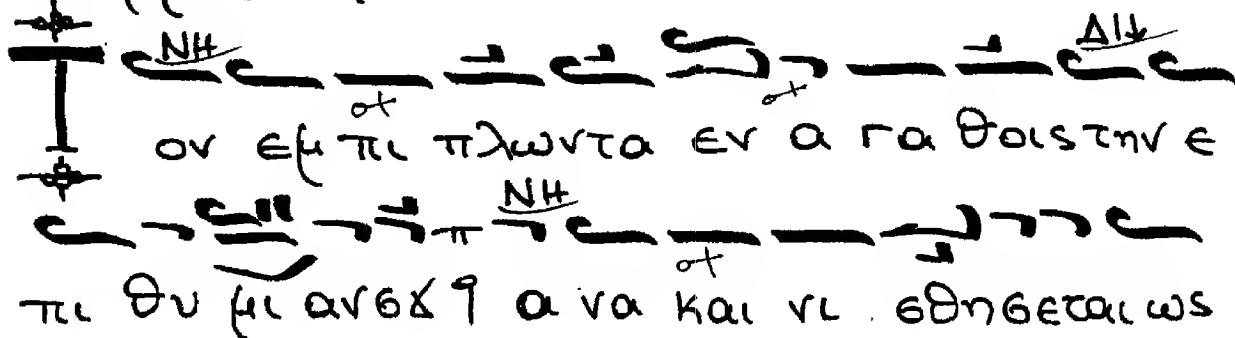 ΝΗ ΔΙ
Τ ον εμ πι πλωντα εν α γα θοις την ε
ΝΗ
πι θυ μι αν σȣ α να και νι σθησεται ως